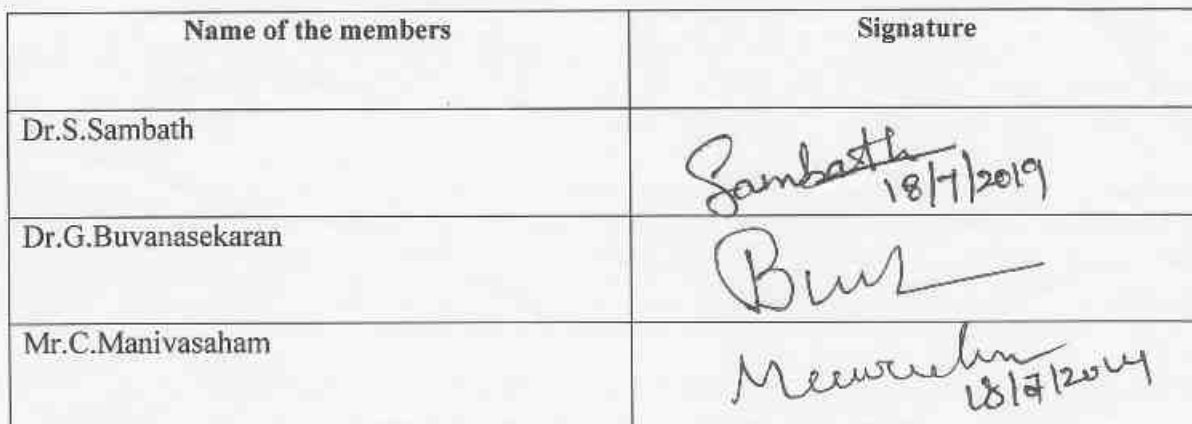 Name of the members Signature
Dr.S.Sambath Sambath
18/7/2019
Dr.G.Buvanasekaran
Mr.C.Manivasaham